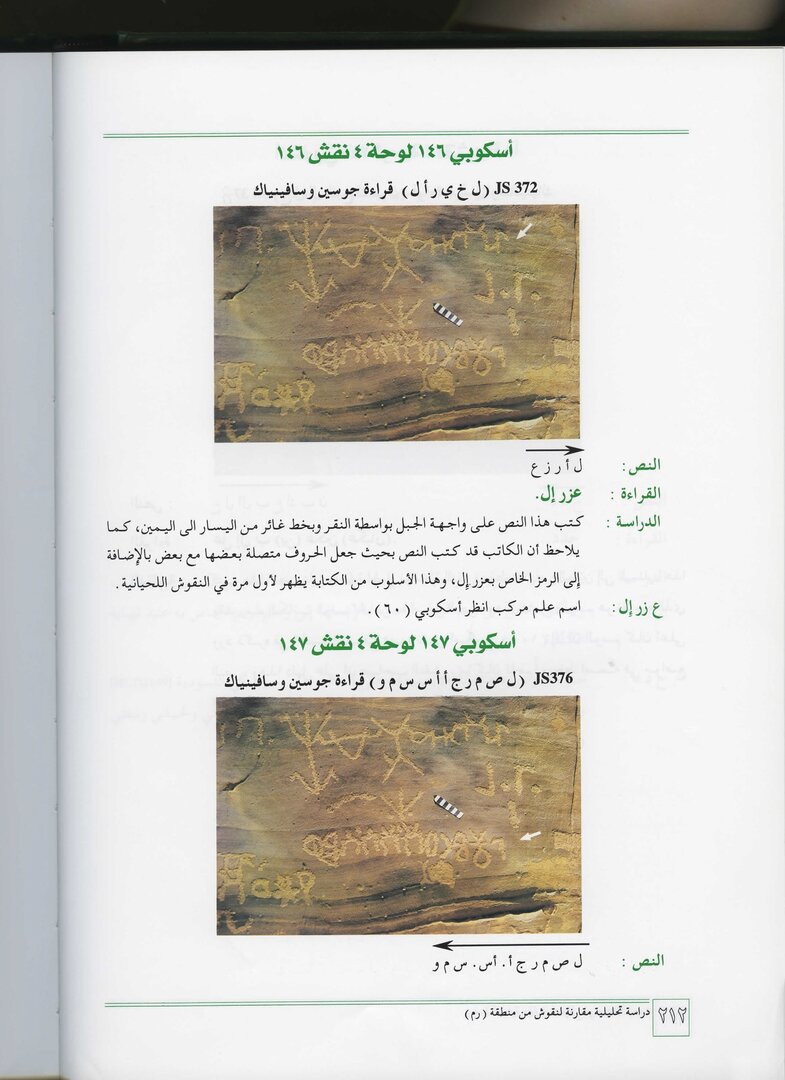 أسكوبي ١٤٦ لوحة ٤ نقش ١٤٦
JS 372 (ل خ ي ر أ ل) قراءة جوسين وسافينياك
النص: ل أ ر ز ع
القراءة : عزر إل.
الدراسة : كتب هذا النص على واجهة الجبل بواسطة النقر وبخط غائر من اليسار الى اليمين، كما
يلاحظ أن الكاتب قد كتب النص بحيث جعل الحروف متصلة بعضها مع بعض بالإضافة
إلى الرمز الخاص بعزر إل، وهذا الأسلوب من الكتابة يظهر لأول مرة في النقوش اللحيانية.
ع زر إل: اسم علم مركب انظر أسكوبي (٦٠).
أسكوبي ١٤٧ لوحة ٤ نقش ١٤٧
JS376 (ل ص م ر ج أ أ س س م و) قراءة جوسين وسافينياك
النص : ل ص م ر ج أ. أس. س م و
٢١٢ دراسة تحليلية مقارنة لنقوش من منطقة (رم)